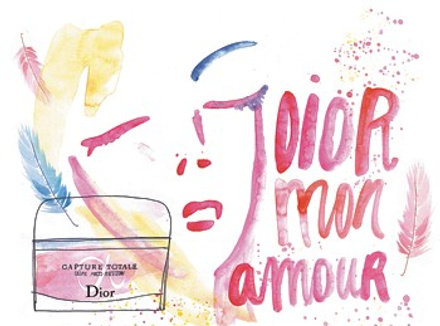 DIOR
mon
amouR
CAPTURE TOTALE
Dior